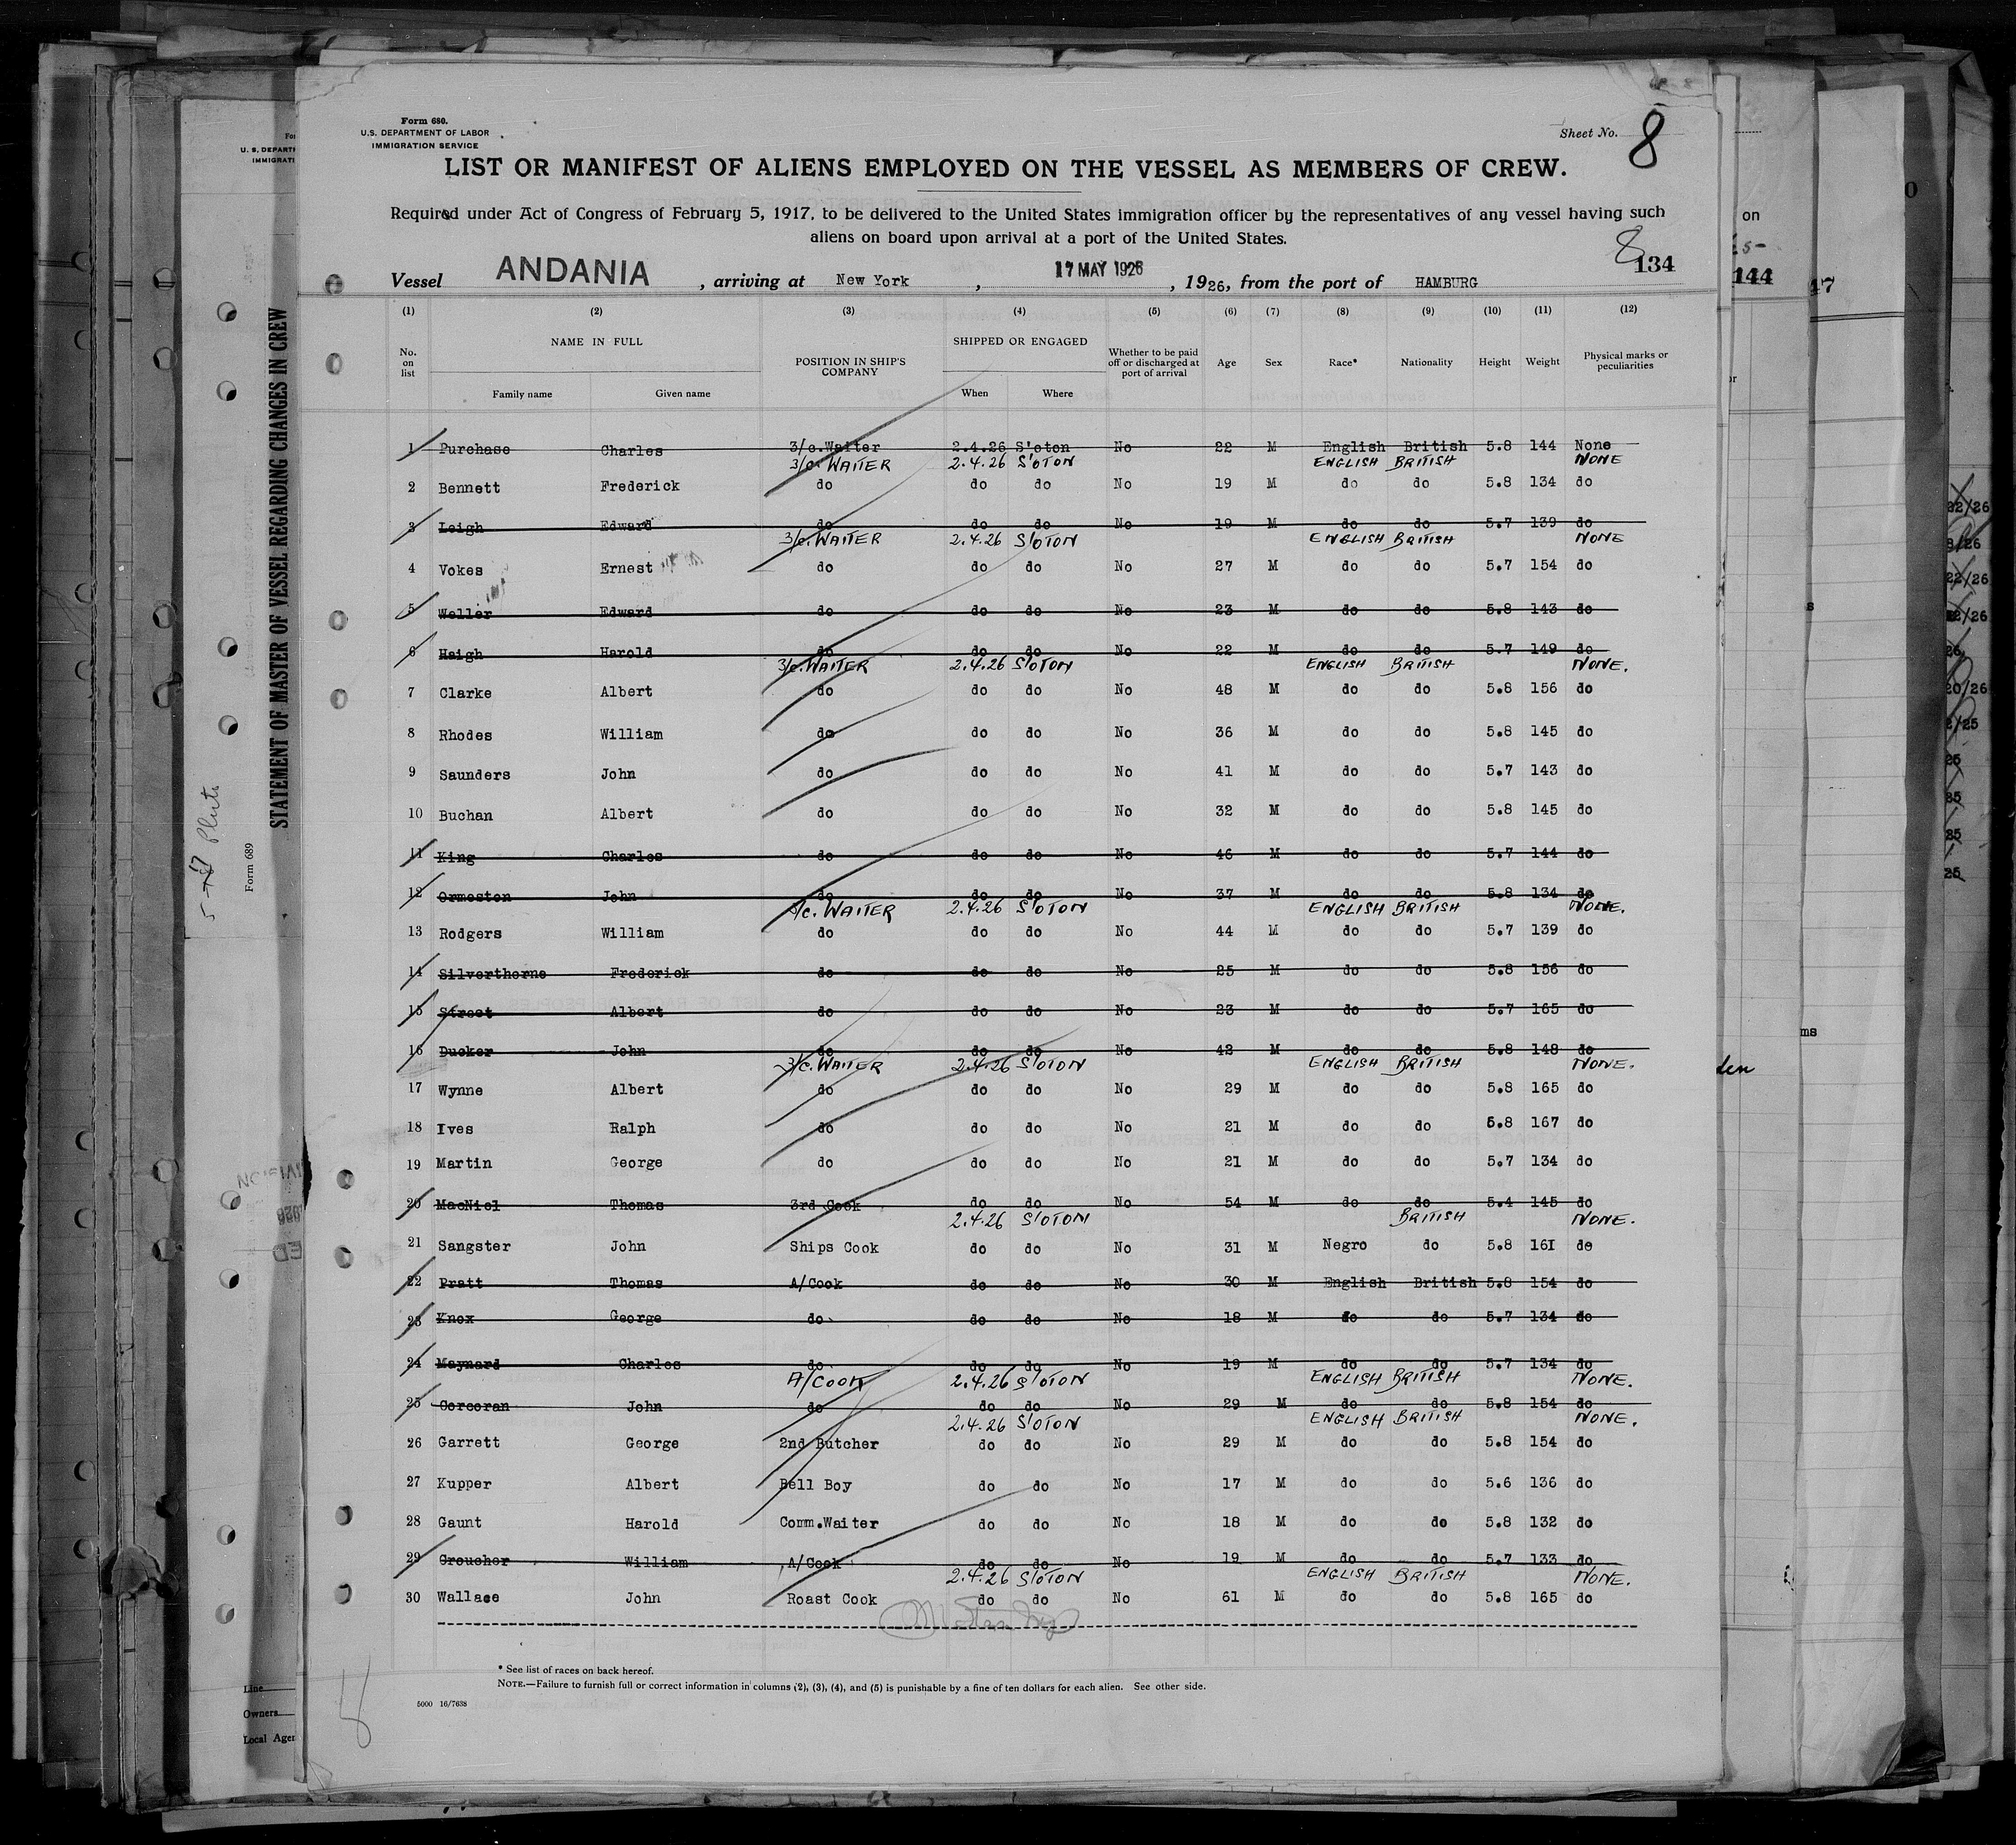 Form 680.
U.S. DEPARTMENT OF LABOR
IMMIGRATION SERVICE
Sheet No. 8
LIST OR MANIFEST OF ALIENS EMPLOYED ON THE VESSEL AS MEMBERS OF CREW.
Required under Act of Congress of February 5, 1917, to be delivered to the United States immigration officer by the representatives of any vessel having such
aliens on board upon arrival at a port of the United States.
8
134
Vessel ANDANIA , arriving at New York , 17 MAY 1926 , 1926, from the port of HAMBURG
(1) (2) (3) (4) (5) (6) (7) (8) (9) (10) (11) (12)
No. on list NAME IN FULL POSITION IN SHIP'S COMPANY SHIPPED OR ENGAGED Whether to be paid off or discharged at port of arrival Age Sex Race* Nationality Height Weight Physical marks or peculiarities
Family name Given name When Where
1 Purchase Charles 3/c.Waiter 2.4.26 S'oton No 22 M English British 5.8 144 None
3/c. WAITER 2.4.26 S'OTON ENGLISH BRITISH NONE
2 Bennett Frederick do do do No 19 M do do 5.8 134 do
3 Leigh Edward do do do No 19 M do do 5.7 139 do
3/c. WAITER 2.4.26 S'OTON ENGLISH BRITISH NONE
4 Vokes Ernest do do do No 27 M do do 5.7 154 do
5 Weller Edward do do do No 23 M do do 5.8 143 do
6 Haigh Harold do do do No 22 M do do 5.7 149 do
3/c. WAITER 2.4.26 S'OTON ENGLISH BRITISH NONE.
7 Clarke Albert do do do No 48 M do do 5.8 156 do
8 Rhodes William do do do No 36 M do do 5.8 145 do
9 Saunders John do do do No 41 M do do 5.7 143 do
10 Buchan Albert do do do No 32 M do do 5.8 145 do
11 King Charles do do do No 46 M do do 5.7 144 do
12 Ormeston John do do do No 37 M do do 5.8 134 do
3/c. WAITER 2.4.26 S'OTON ENGLISH BRITISH NONE.
13 Rodgers William do do do No 44 M do do 5.7 139 do
14 Silverthorne Frederick do do do No 25 M do do 5.8 156 do
15 Street Albert do do do No 23 M do do 5.7 165 do
16 Ducker John do do do No 42 M do do 5.8 148 do
3/c. WAITER 2.4.26 S'OTON ENGLISH BRITISH NONE.
17 Wynne Albert do do do No 29 M do do 5.8 165 do
18 Ives Ralph do do do No 21 M do do 5.8 167 do
19 Martin George do do do No 21 M do do 5.7 134 do
20 MacNiel Thomas 3rd Cook do do No 54 M do do 5.4 145 do
2.4.26 S'OTON BRITISH NONE.
21 Sangster John Ships Cook do do No 31 M Negro do 5.8 161 do
22 Pratt Thomas A/Cook do do No 30 M English British 5.8 154 do
23 Knox George do do do No 18 M do do 5.7 134 do
24 Maynard Charles do do do No 19 M do do 5.7 134 do
A/COOK 2.4.26 S'OTON ENGLISH BRITISH NONE.
25 Corcoran John do do do No 29 M do do 5.8 154 do
2.4.26 S'OTON ENGLISH BRITISH NONE.
26 Garrett George 2nd Butcher do do No 29 M do do 5.8 154 do
27 Kupper Albert Bell Boy do do No 17 M do do 5.6 136 do
28 Gaunt Harold Comm.Waiter do do No 18 M do do 5.8 132 do
29 Croucher William A/Cook do do No 19 M do do 5.7 133 do
2.4.26 S'OTON ENGLISH BRITISH NONE.
30 Wallace John Roast Cook do do No 61 M do do 5.8 165 do
* See list of races on back hereof.
NOTE.—Failure to furnish full or correct information in columns (2), (3), (4), and (5) is punishable by a fine of ten dollars for each alien. See other side.
5000 16/7638
8
STATEMENT OF MASTER OF VESSEL REGARDING CHANGES IN CREW
Form 689
U. S. DEPART
IMMIGRATI
Line
Owners
Local Agen
on
144
47